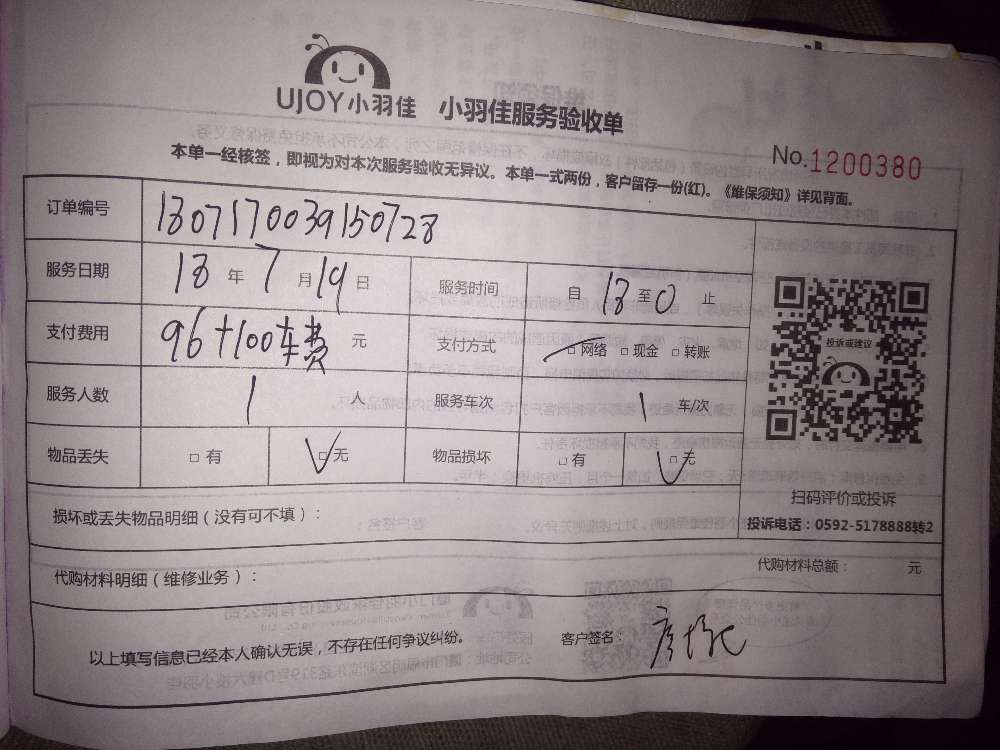 UJOY小羽佳 小羽佳服务验收单
No.1200380
本单一经核签，即视为对本次服务验收无异议。本单一式两份，客户留存一份(红)。《维保须知》详见背面。
订单编号 1807170039150728
服务日期 18 年 7 月 19 日 服务时间 自 18 至 0 止
支付费用 96+100车费 元 支付方式 □网络 □现金 □转账
投诉或建议
服务人数 1 人 服务车次 1 车/次
物品丢失 □有 □无 物品损坏 □有 □无
扫码评价或投诉
损坏或丢失物品明细（没有可不填）：
投诉电话：0592-5178888转2
代购材料明细（维修业务）：
代购材料总额： 元
以上填写信息已经本人确认无误，不存在任何争议纠纷。
客户签名：